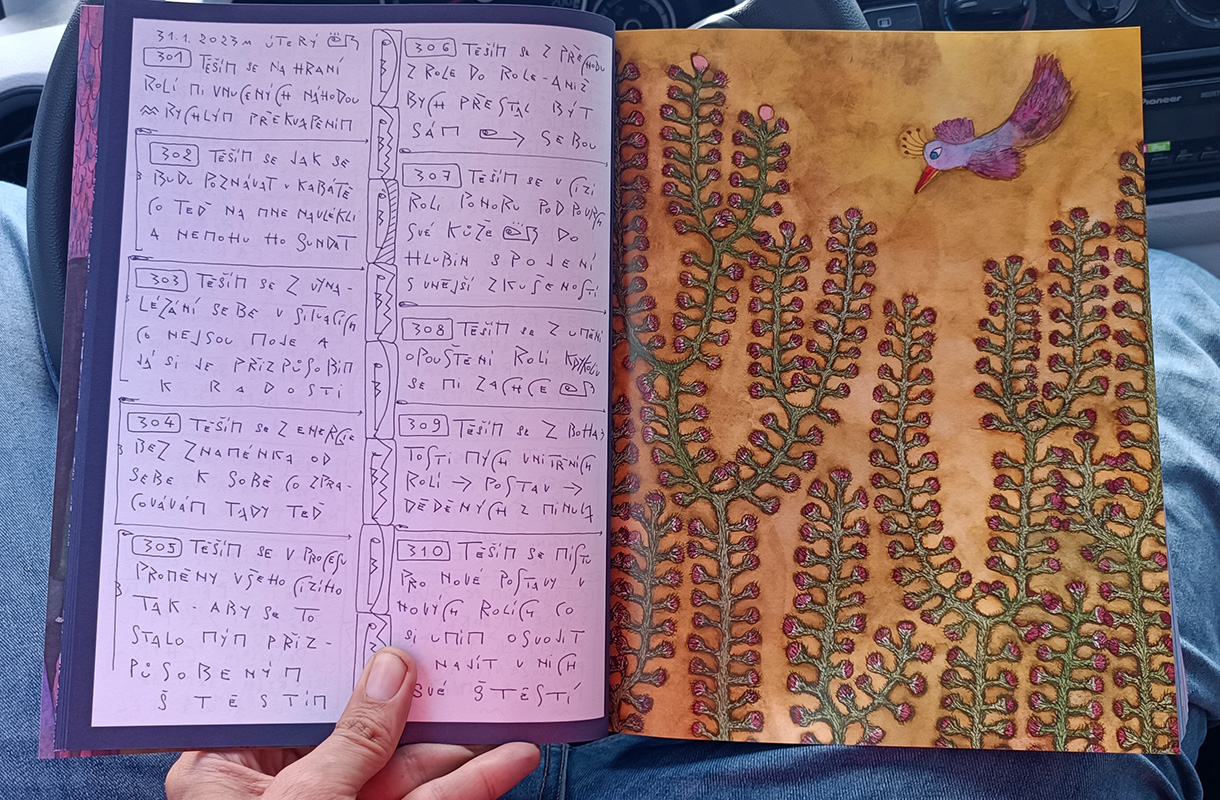 31.1.2023 ÚTERÝ
301 TĚŠÍM SE NA HRANÍ
ROLÍ MI VNUCENÝCH NÁHODOU
RYCHLÝM PŘEKVAPENÍM
302 TĚŠÍM SE JAK SE
BUDU POZNÁVAT V KABÁTĚ
CO TEĎ NA MNE NAVLÉKLI
A NEMOHU HO SUNDAT
303 TĚŠÍM SE Z VYNA-
LÉZÁNÍ SEBE V SITUACÍCH
CO NEJSOU MOJE A
JÁ SI JE PŘIZPŮSOBÍM
K RADOSTI
304 TĚŠÍM SE Z ENERGIE
BEZ ZNAMÉNKA OD
SEBE K SOBĚ CO ZPRA-
COVÁVÁM TADY TEĎ
305 TĚŠÍM SE V PROCESU
PROMĚNY VŠEHO CIZÍHO
TAK - ABY SE TO
STALO MÝM PŘIZ-
PŮSOBENÝM
ŠTĚSTÍM
306 TĚŠÍM SE Z PŘECHODU
Z ROLE DO ROLE - ANIŽ
BYCH PŘESTAL BÝT
SÁM → SEBOU
307 TĚŠÍM SE V CIZÍ
ROLI PONORU POD POVRCH
SVÉ KŮŽE DO
HLUBIN SPOJENÍ
S VNEJŠÍ ZKUŠENOSTÍ
308 TĚŠÍM SE Z UMĚNÍ
OPOUŠTĚNÍ ROLÍ KDYKOLIV
SE MI ZACHCE
309 TĚŠÍM SE Z BOHA-
TOSTI MÝCH VNITŘNÍCH
ROLÍ → POSTAV →
DĚDĚNÝCH Z MINULA
310 TĚŠÍM SE MÍSTU
PRO NOVÉ POSTAVY V
NOVÝCH ROLÍCH CO
SI UMÍM OSVOJIT
NAJÍT V NICH
SVÉ ŠTĚSTÍ
Pioneer